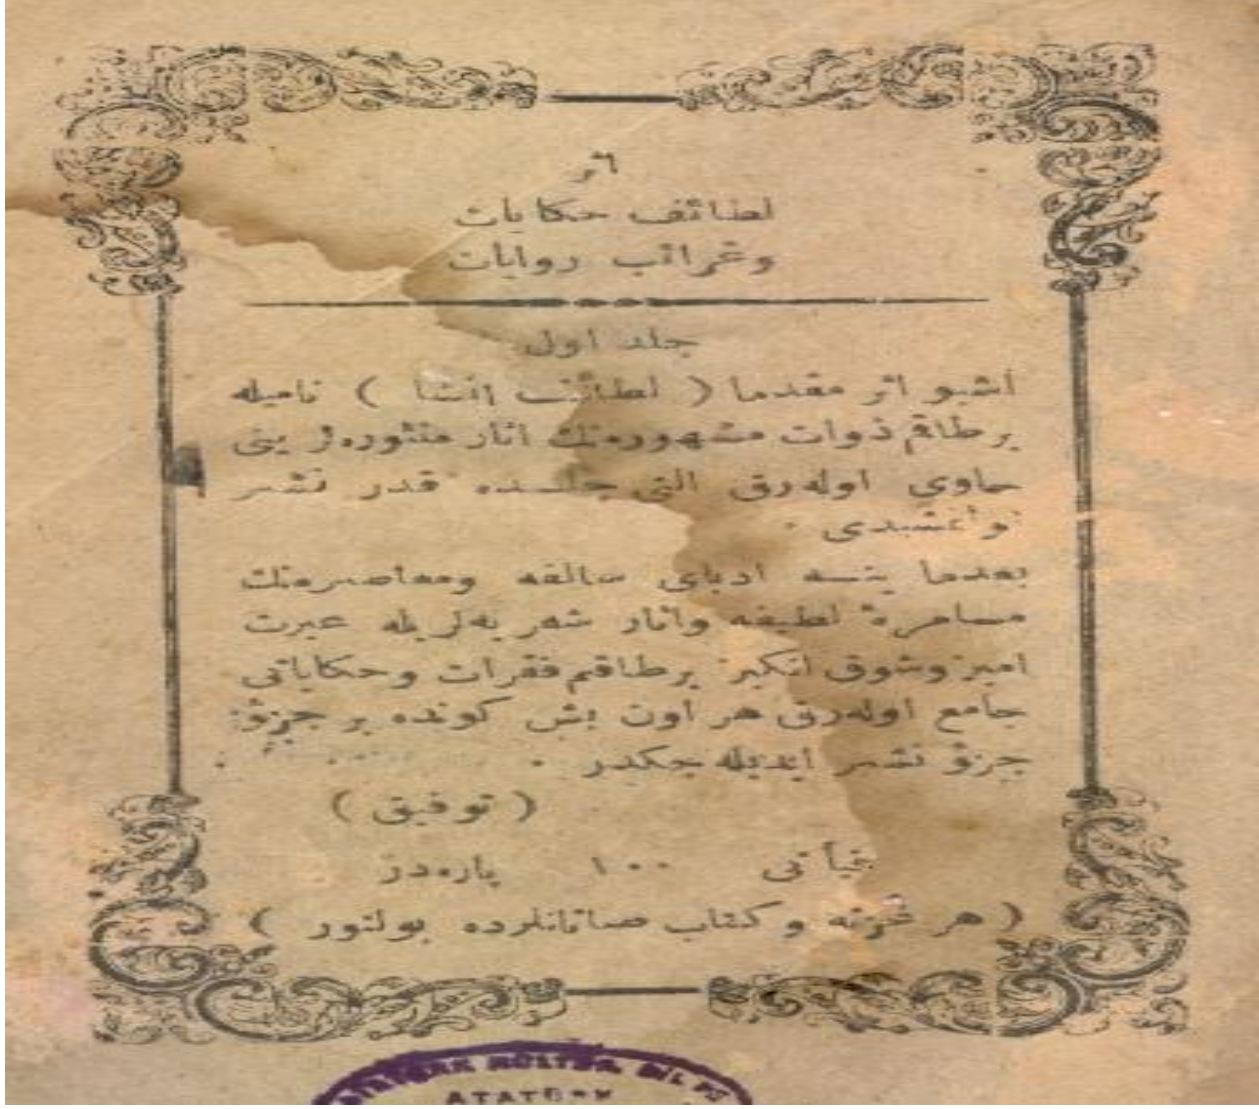 اثر
لطائف حكايات
وغرائب روايات
جلد اول
اشبو اثر مقدما ( لطائف انشا ) ناميله
بر طاقم ذوات مشهوره‌نك اثار منثوره‌لرينى
حاوى اوله‌رق التى جلده قدر نشر
بعدما ينه ادباى سالفه ومعاصره‌نك
مسامرۀ لطيفه واثار شعريه‌لريله عبرت
اميز وشوق انكيز بر طاقم فقرات وحكاياتى
جامع اوله‌رق هر اون بش كونده بر جزؤ
جزؤ نشر ايديله‌جكدر .
( توفيق )
فيأتى ١٠٠ پاره‌در
( هر غزته و كتاب صاتانلرده بولنور )
ATATÜRK KÜLTÜR, DİL
ATATÜRK